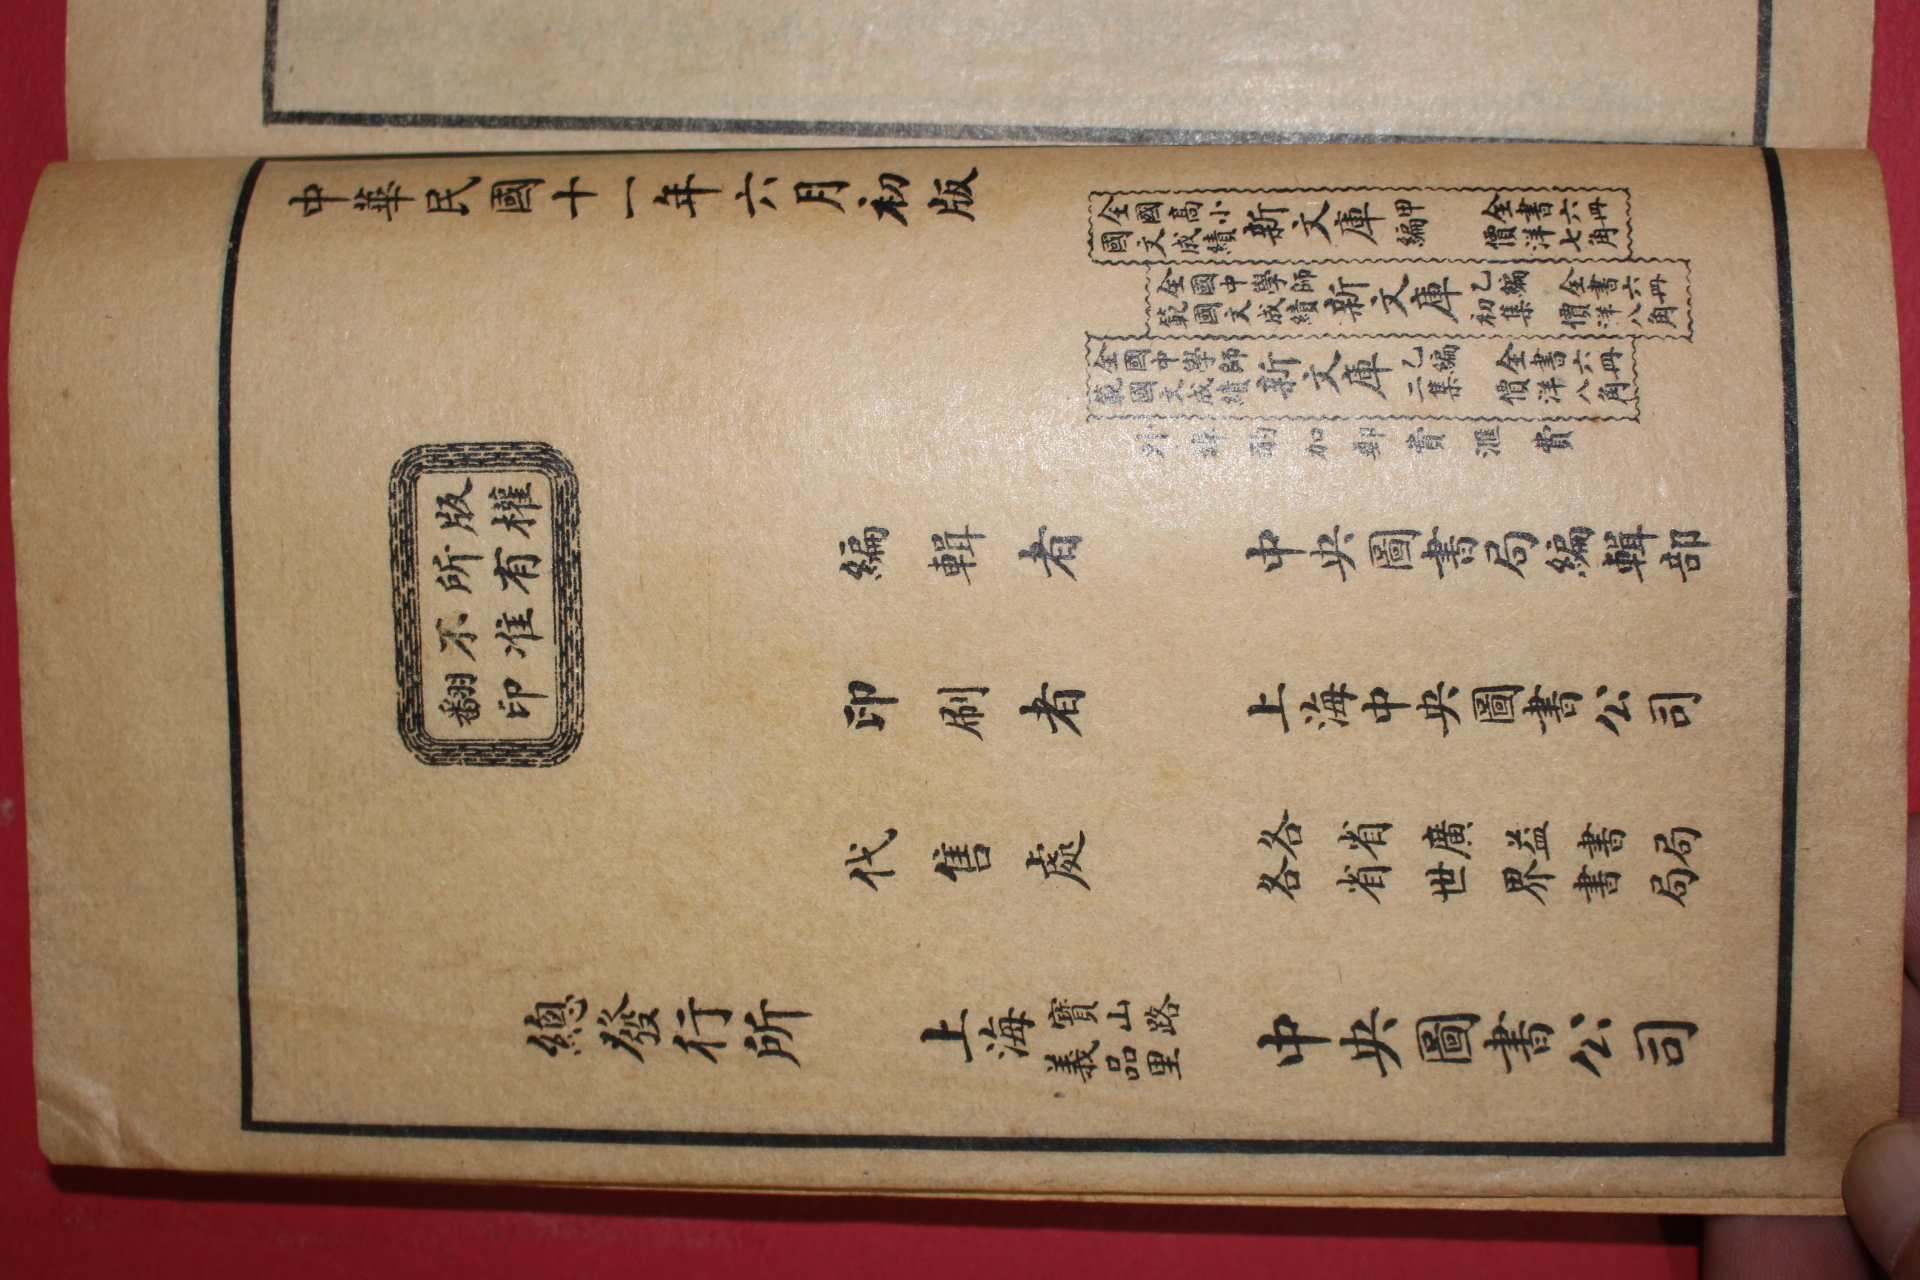 中華民國十一年六月初版
全國高小
國文成績
新文庫
甲編
全書六冊
價洋七角
全國中學師
範國文成績
新文庫
乙編
初集
全書六冊
價洋八角
全國中學師
範國文成績
新文庫
乙編
二集
全書六冊
價洋八角
外埠酌加郵費匯費
版權
所有
不准
翻印
編輯者 中央圖書局編輯部
印刷者 上海中央圖書公司
代售處
各省廣益書局
各省世界書局
總發行所
上海
寶山路
義品里
中央圖書公司